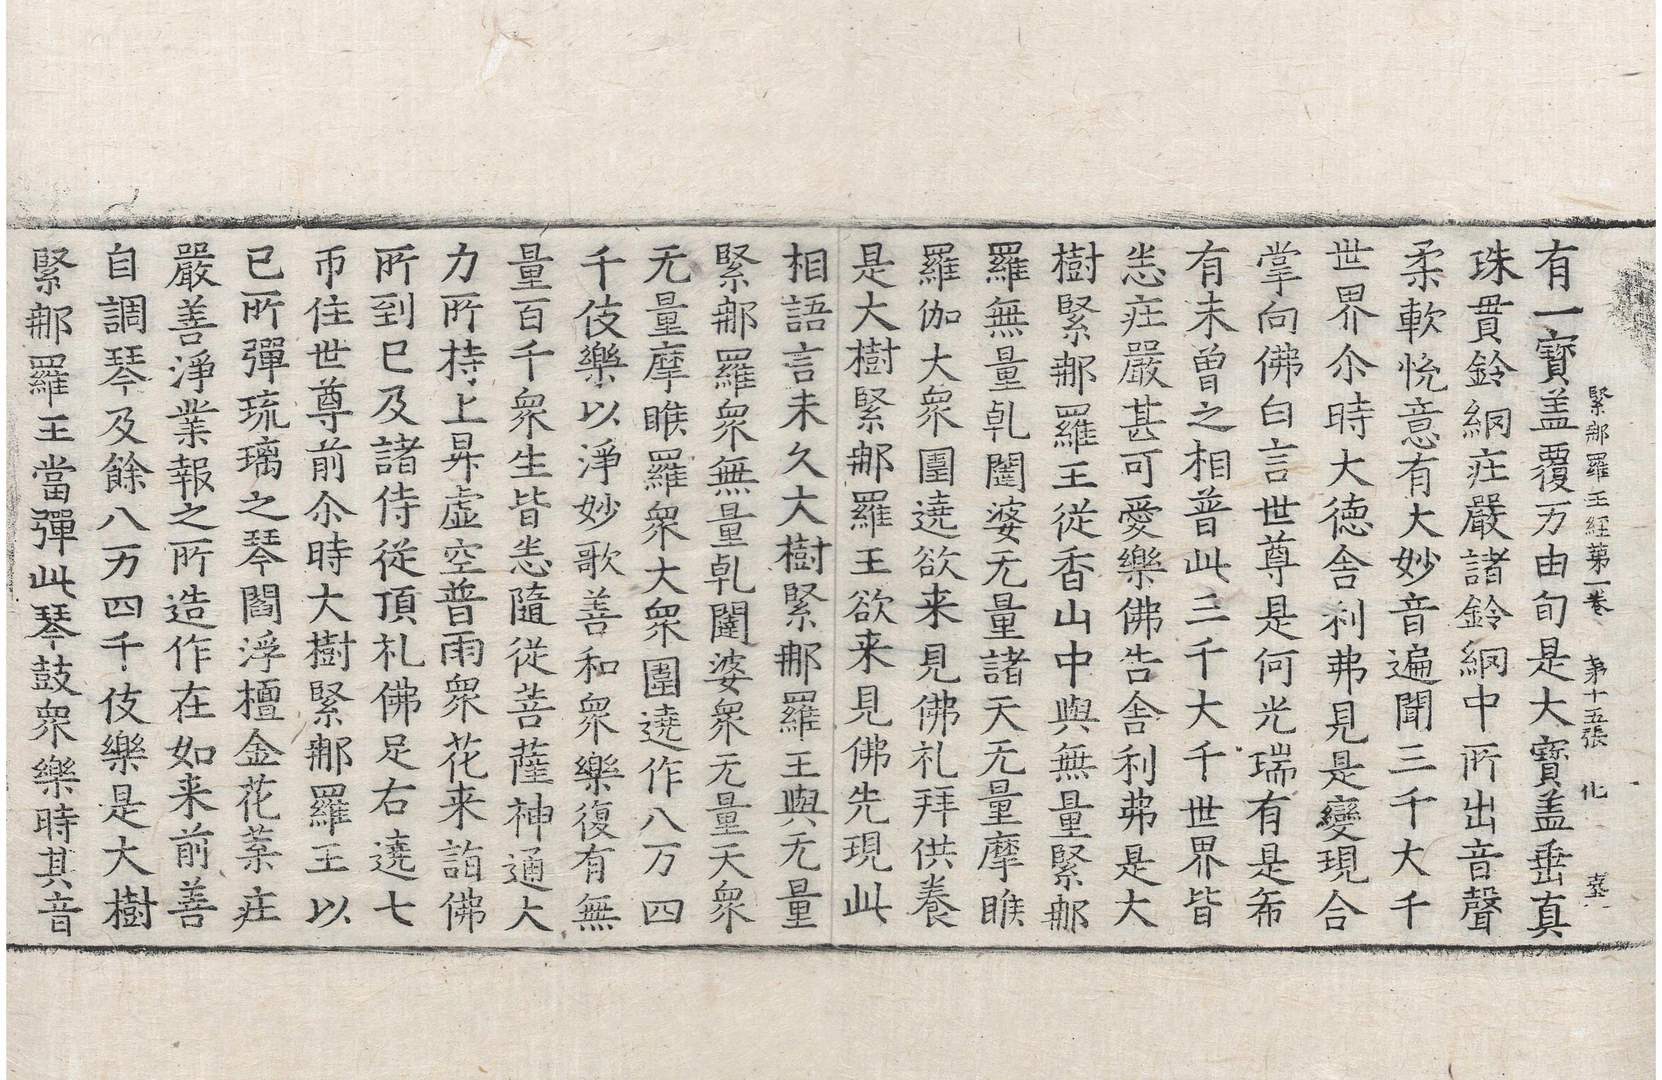 緊那羅王經第一卷 第十五張 化
有一寶盖覆万由旬是大寶盖垂真
珠貫鈴網庄嚴諸鈴網中所出音聲
柔軟悅意有大妙音遍聞三千大千
世界尒時大德舍利弗見是變現合
掌向佛白言世尊是何光瑞有是希
有未曾之相普此三千大千世界皆
悉庄嚴甚可愛樂佛告舍利弗是大
樹緊那羅王從香山中與無量緊那
羅無量乹闥婆无量諸天无量摩睺
羅伽大衆圍遶欲来見佛礼拜供養
是大樹緊那羅王欲来見佛先現此
相語言未久大樹緊那羅王與无量
緊那羅衆無量乹闥婆衆无量天衆
无量摩睺羅衆大衆圍遶作八万四
千伎樂以淨妙歌善和衆樂復有無
量百千衆生皆悉隨從菩薩神通大
力所持上昇虛空普雨衆花来詣佛
所到已及諸侍從頂礼佛足右遶七
帀住世尊前尒時大樹緊那羅王以
已所彈琉璃之琴閻浮檀金花葉庄
嚴善淨業報之所造作在如来前善
自調琴及餘八万四千伎樂是大樹
緊那羅王當彈此琴鼓衆樂時其音